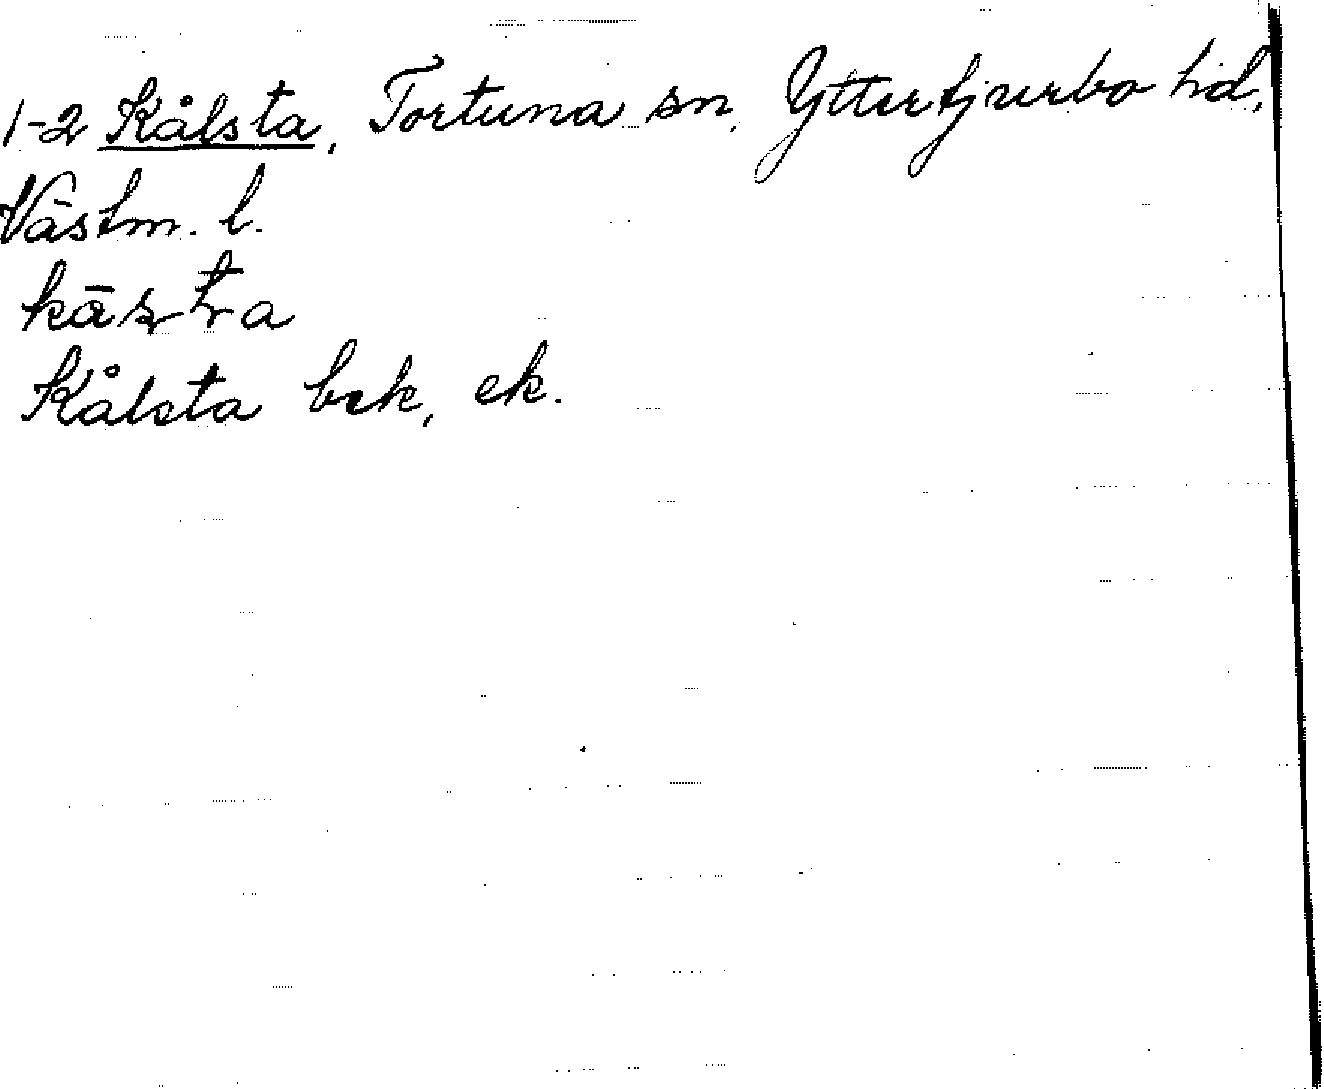 1-2 Kålsta, Tortuna sn, Yttertjurbo hd,
Västm. l.
Kålsta bek, ek.